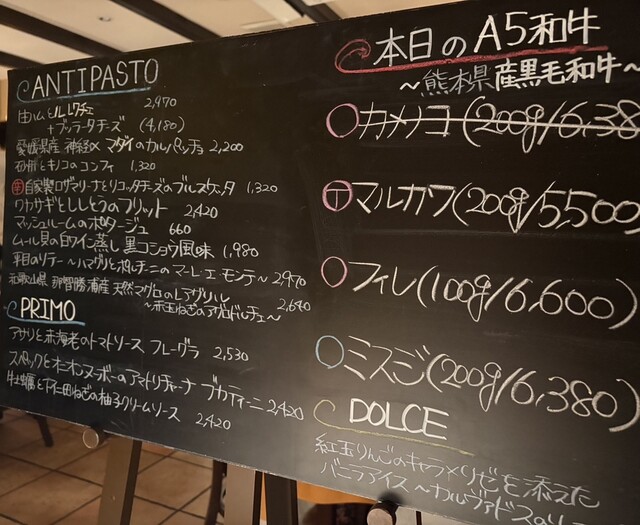 ANTIPASTO
生ハムとルレクチェ 2,970
+ブッラータチーズ (4,180)
愛媛県産 神経〆 マダイのカルパッチョ 2,200
砂肝とキノコのコンフィ 1,320
自家製ロザマリーナとリコッタチーズのブルスケッタ 1,320
ワカサギとししとうのフリット 2,420
マッシュルームのポタージュ 660
ムール貝の白ワイン蒸し 黒コショウ風味 1,980
平目のソテー ~ハマグリとポルチーニのマーレ・エ・モンテ~ 2,970
和歌山県 那智勝浦産 天然マグロのレアグリル
~赤玉ねぎのアグロドルチェ~ 2,640
PRIMO
アサリと赤海老のトマトソース フレーグラ 2,530
スペックとオニオンヌーボーのアマトリチャーナ ブカティーニ 2,420
牡蠣と下仁田ねぎの柚子クリームソース 2,420
本日のA5和牛
~熊本県産黒毛和牛~
カメノコ(200g/6,38
マルカワ(200g/5,500)
フィレ(100g/6,600)
ミスジ(200g/6,380)
DOLCE
紅玉りんごのキャラメリゼを添えた
バニラアイス ~カルヴァドス